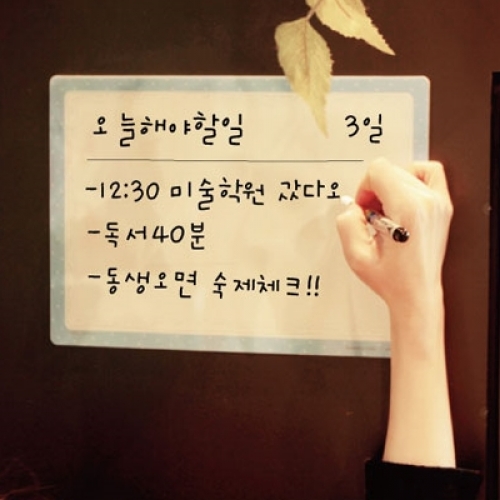 오늘해야할일 3일
-12:30 미술학원 갔다오
-독서40분
-동생오면 숙제체크!!